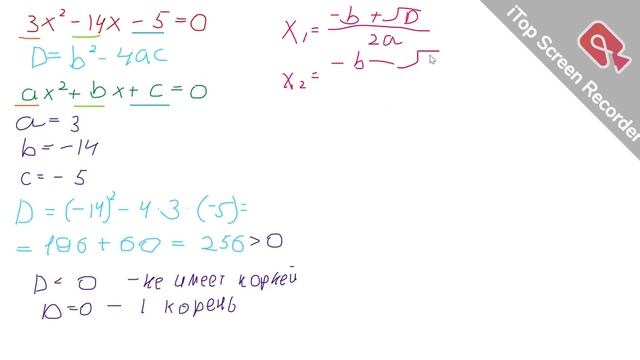 3x² - 14x - 5 = 0
D = b² - 4ac
ax² + bx + c = 0
a = 3
b = -14
c = -5
D = (-14)² - 4 · 3 · (-5) =
= 196 + 60 = 256 > 0
D < 0 - не имеет корней
D = 0 - 1 корень
x₁ = (-b + √D) / 2a
x₂ = -b - √
iTop Screen Recorder